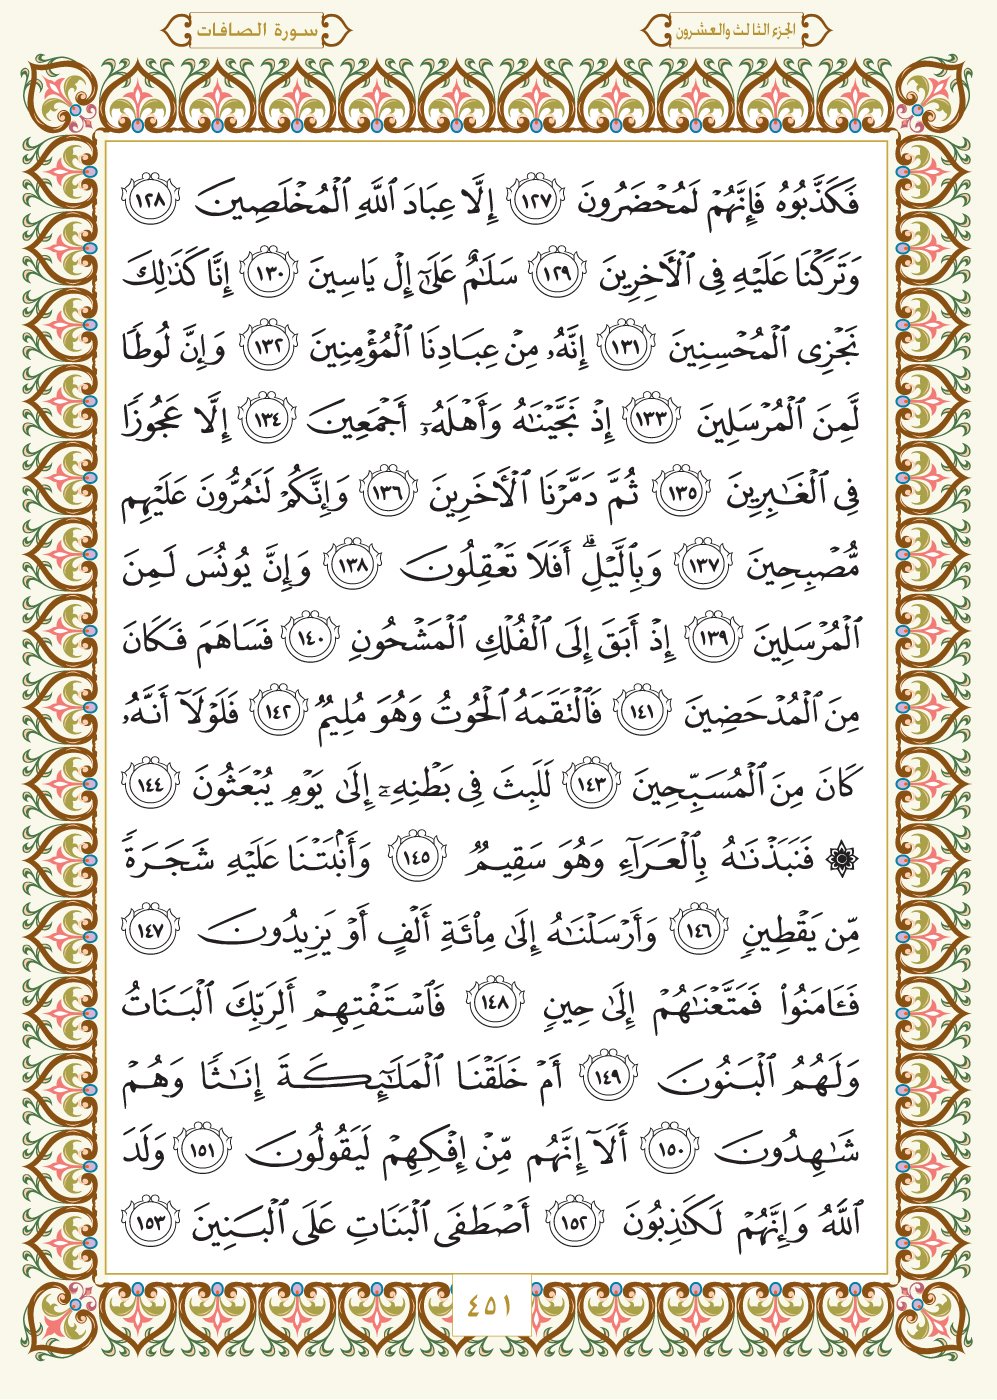 الجزء الثالث والعشرون
سورة الصافات
فَكَذَّبُوهُ فَإِنَّهُمۡ لَمُحۡضَرُونَ ١٢٧ إِلَّا عِبَادَ ٱللَّهِ ٱلۡمُخۡلَصِينَ ١٢٨
وَتَرَكۡنَا عَلَيۡهِ فِي ٱلۡأٓخِرِينَ ١٢٩ سَلَٰمٌ عَلَىٰٓ إِلۡ يَاسِينَ ١٣٠ إِنَّا كَذَٰلِكَ
نَجۡزِي ٱلۡمُحۡسِنِينَ ١٣١ إِنَّهُۥ مِنۡ عِبَادِنَا ٱلۡمُؤۡمِنِينَ ١٣٢ وَإِنَّ لُوطٗا
لَّمِنَ ٱلۡمُرۡسَلِينَ ١٣٣ إِذۡ نَجَّيۡنَٰهُ وَأَهۡلَهُۥٓ أَجۡمَعِينَ ١٣٤ إِلَّا عَجُوزٗا
فِي ٱلۡغَٰبِرِينَ ١٣٥ ثُمَّ دَمَّرۡنَا ٱلۡأٓخَرِينَ ١٣٦ وَإِنَّكُمۡ لَتَمُرُّونَ عَلَيۡهِم
مُّصۡبِحِينَ ١٣٧ وَبِٱلَّيۡلِۚ أَفَلَا تَعۡقِلُونَ ١٣٨ وَإِنَّ يُونُسَ لَمِنَ
ٱلۡمُرۡسَلِينَ ١٣٩ إِذۡ أَبَقَ إِلَى ٱلۡفُلۡكِ ٱلۡمَشۡحُونِ ١٤٠ فَسَاهَمَ فَكَانَ
مِنَ ٱلۡمُدۡحَضِينَ ١٤١ فَٱلۡتَقَمَهُ ٱلۡحُوتُ وَهُوَ مُلِيمٞ ١٤٢ فَلَوۡلَآ أَنَّهُۥ
كَانَ مِنَ ٱلۡمُسَبِّحِينَ ١٤٣ لَلَبِثَ فِي بَطۡنِهِۦٓ إِلَىٰ يَوۡمِ يُبۡعَثُونَ ١٤٤
۞ فَنَبَذۡنَٰهُ بِٱلۡعَرَآءِ وَهُوَ سَقِيمٞ ١٤٥ وَأَنۢبَتۡنَا عَلَيۡهِ شَجَرَةٗ
مِّن يَقۡطِينٖ ١٤٦ وَأَرۡسَلۡنَٰهُ إِلَىٰ مِاْئَةِ أَلۡفٍ أَوۡ يَزِيدُونَ ١٤٧
فَـَٔامَنُواْ فَمَتَّعۡنَٰهُمۡ إِلَىٰ حِينٖ ١٤٨ فَٱسۡتَفۡتِهِمۡ أَلِرَبِّكَ ٱلۡبَنَاتُ
وَلَهُمُ ٱلۡبَنُونَ ١٤٩ أَمۡ خَلَقۡنَا ٱلۡمَلَٰٓئِكَةَ إِنَٰثٗا وَهُمۡ
شَٰهِدُونَ ١٥٠ أَلَآ إِنَّهُم مِّنۡ إِفۡكِهِمۡ لَيَقُولُونَ ١٥١ وَلَدَ
ٱللَّهُ وَإِنَّهُمۡ لَكَٰذِبُونَ ١٥٢ أَصۡطَفَى ٱلۡبَنَاتِ عَلَى ٱلۡبَنِينَ ١٥٣
٤٥١